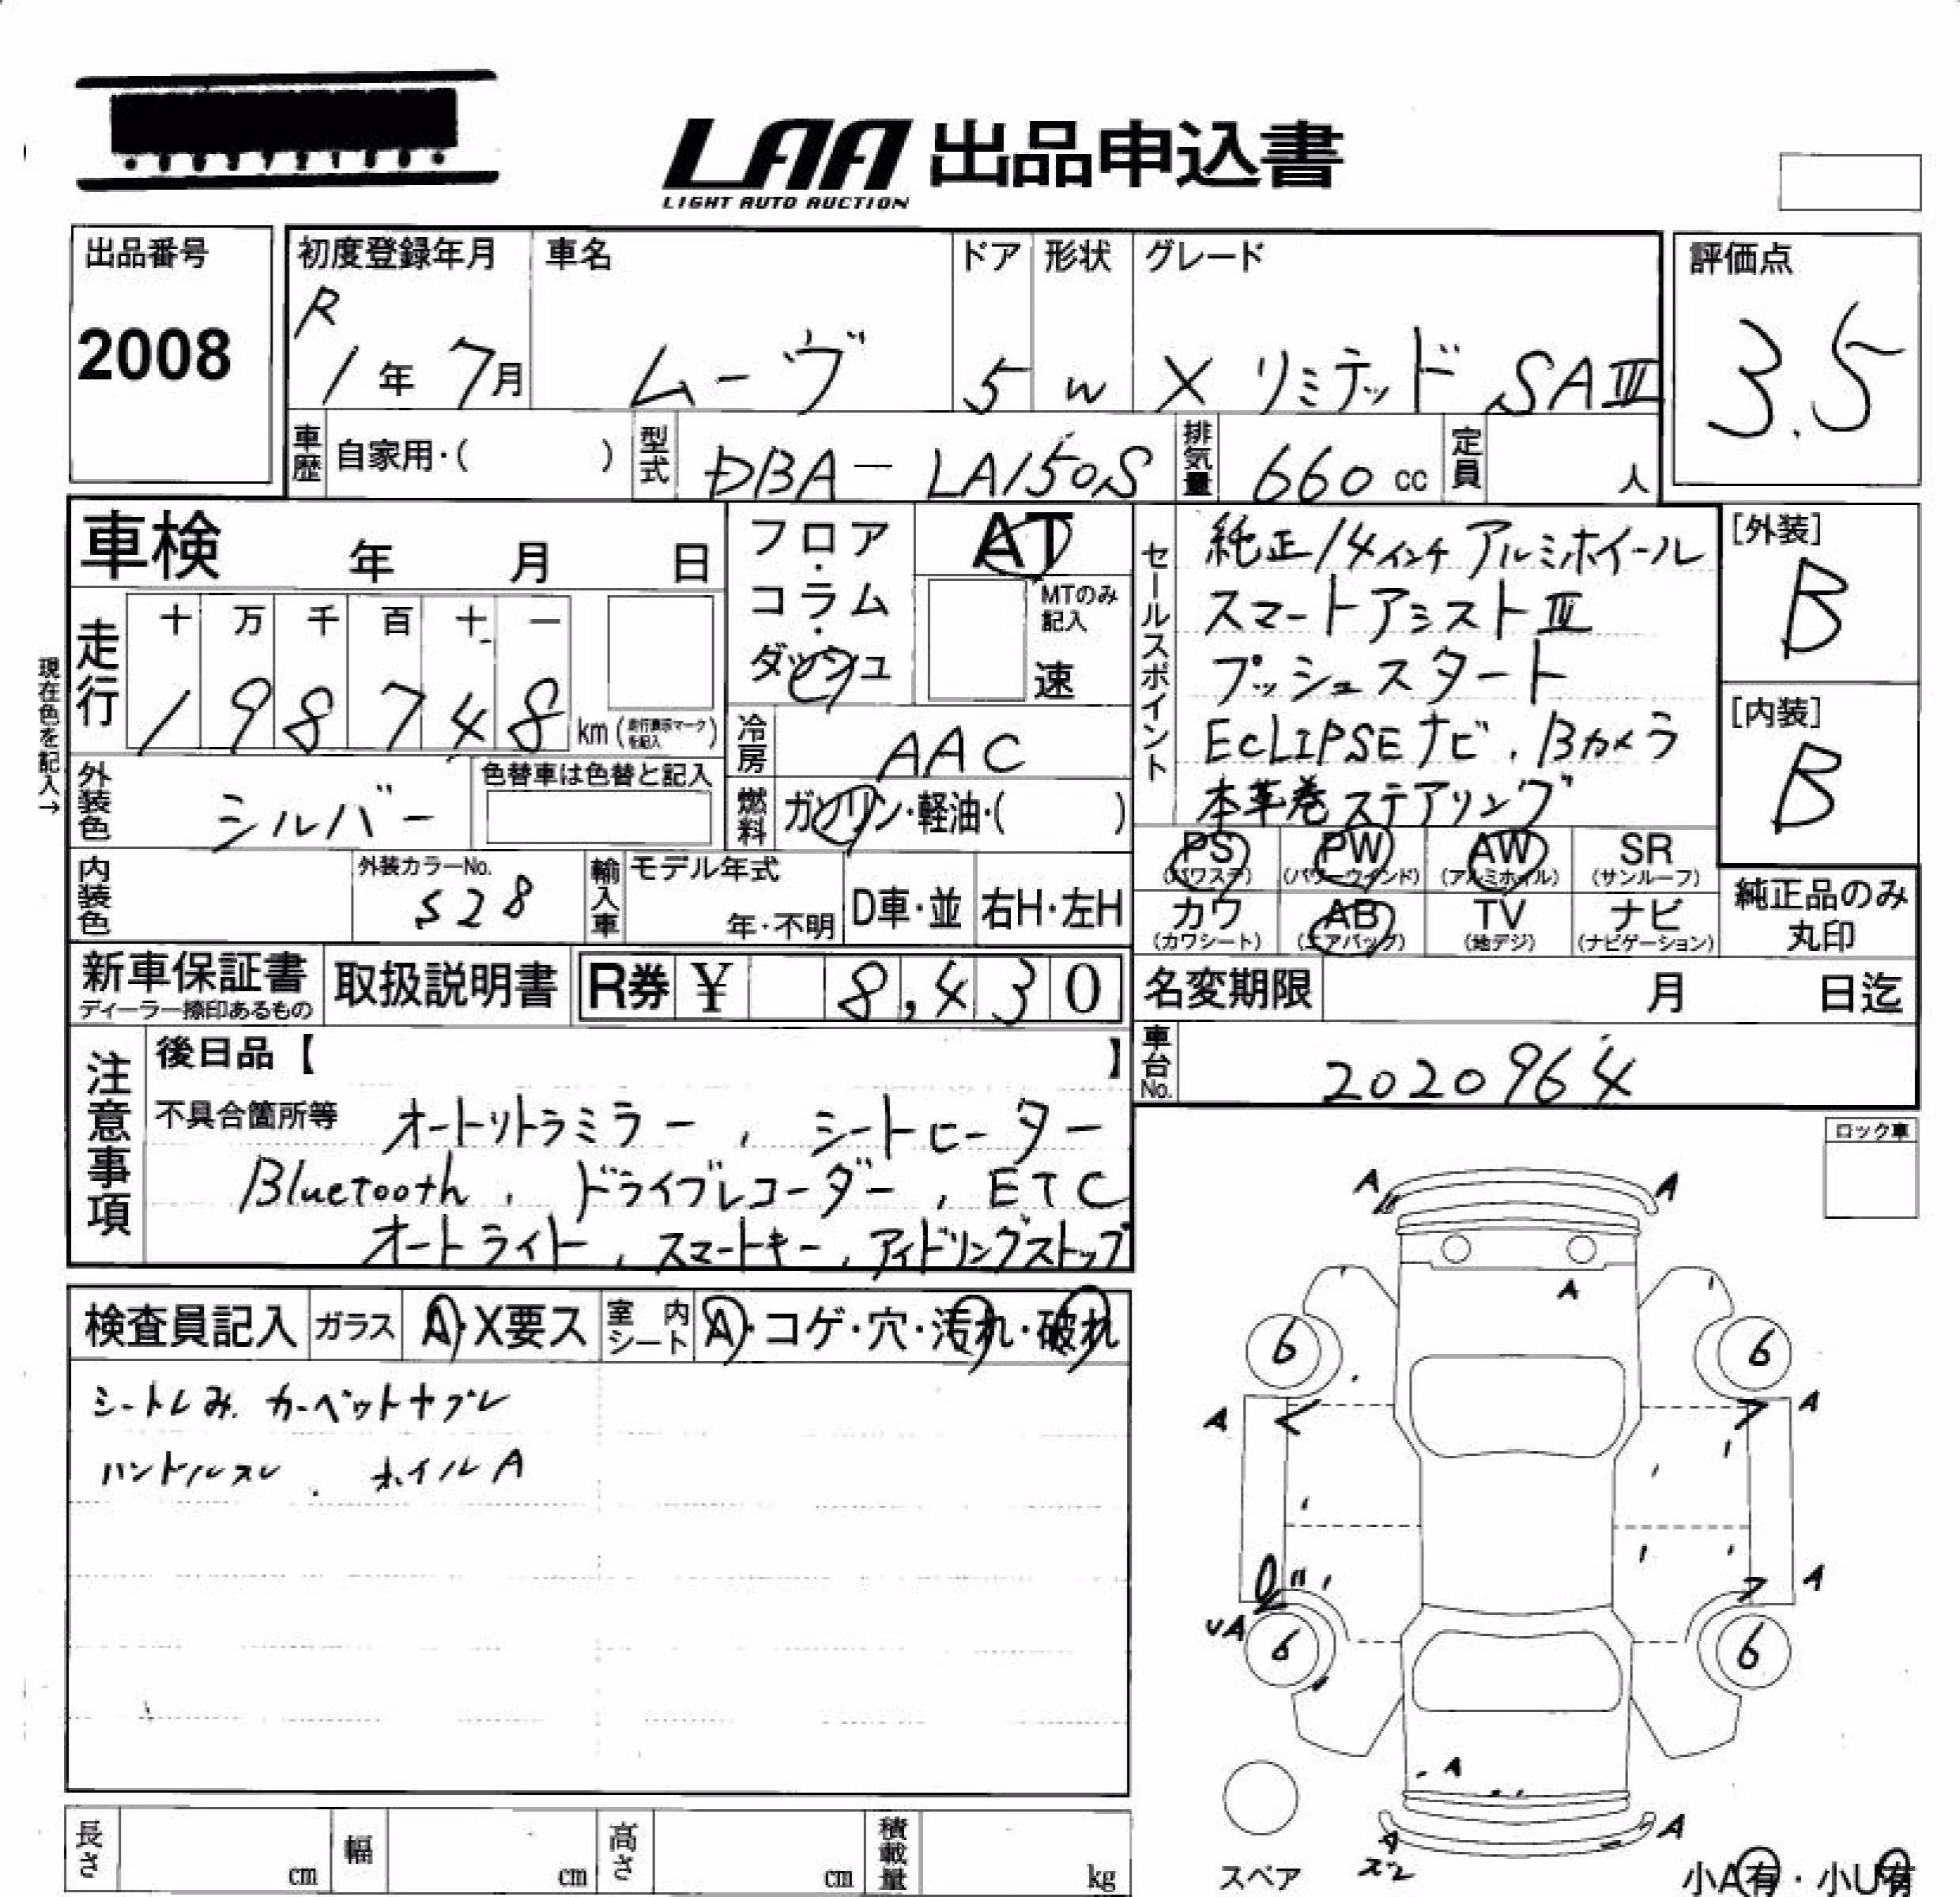 LAA 出品申込書
LIGHT AUTO AUCTION
出品番号
2008
初度登録年月
R
1年 7月
車名
ムーヴ
ドア
5
形状
W
グレード
X リミテッド SAⅢ
評価点
3.5
車歴 自家用・( )
型式 DBA-LA150S
排気量 660 cc
定員 人
車検 年 月 日
フロア・コラム・ダッシュ
AT
MTのみ記入
速
現在色を記入→
走行
十 万 千 百 十 一
1 9 8 7 4 8 km (走行表示マークを記入)
冷房 AAC
外装色 シルバー
色替車は色替と記入
燃料 ガソリン・軽油・( )
内装色
外装カラーNo.
S28
輸入車 モデル年式
年・不明
D車・並
右H・左H
セールスポイント
純正14インチアルミホイール
スマートアシストⅢ
プッシュスタート
ECLIPSEナビ、Bカメラ
本革巻ステアリング
[外装]
B
[内装]
B
PS (パワステ)
PW (パワーウインド)
AW (アルミホイル)
SR (サンルーフ)
カワ (カワシート)
AB (エアバッグ)
TV (地デジ)
ナビ (ナビゲーション)
純正品のみ
丸印
新車保証書
ディーラー捺印あるもの
取扱説明書
R券 ¥ 8,430
名変期限 月 日迄
車台No. 2020964
注意事項
後日品【 】
不具合箇所等 オートリトラミラー、シートヒーター
Bluetooth、ドライブレコーダー、ETC
オートライト、スマートキー、アイドリングストップ
ロック車
検査員記入
ガラス A・X要ス
室内シート A・コゲ・穴・汚れ・破れ
シートシミ、カーペットヤブレ
ハンドルスレ、ホイルA
A A
A
6 6
A A
A
UA
6 6
A
A A
スレ
スペア
小A有・小U有
長さ cm
幅 cm
高さ cm
積載量 kg